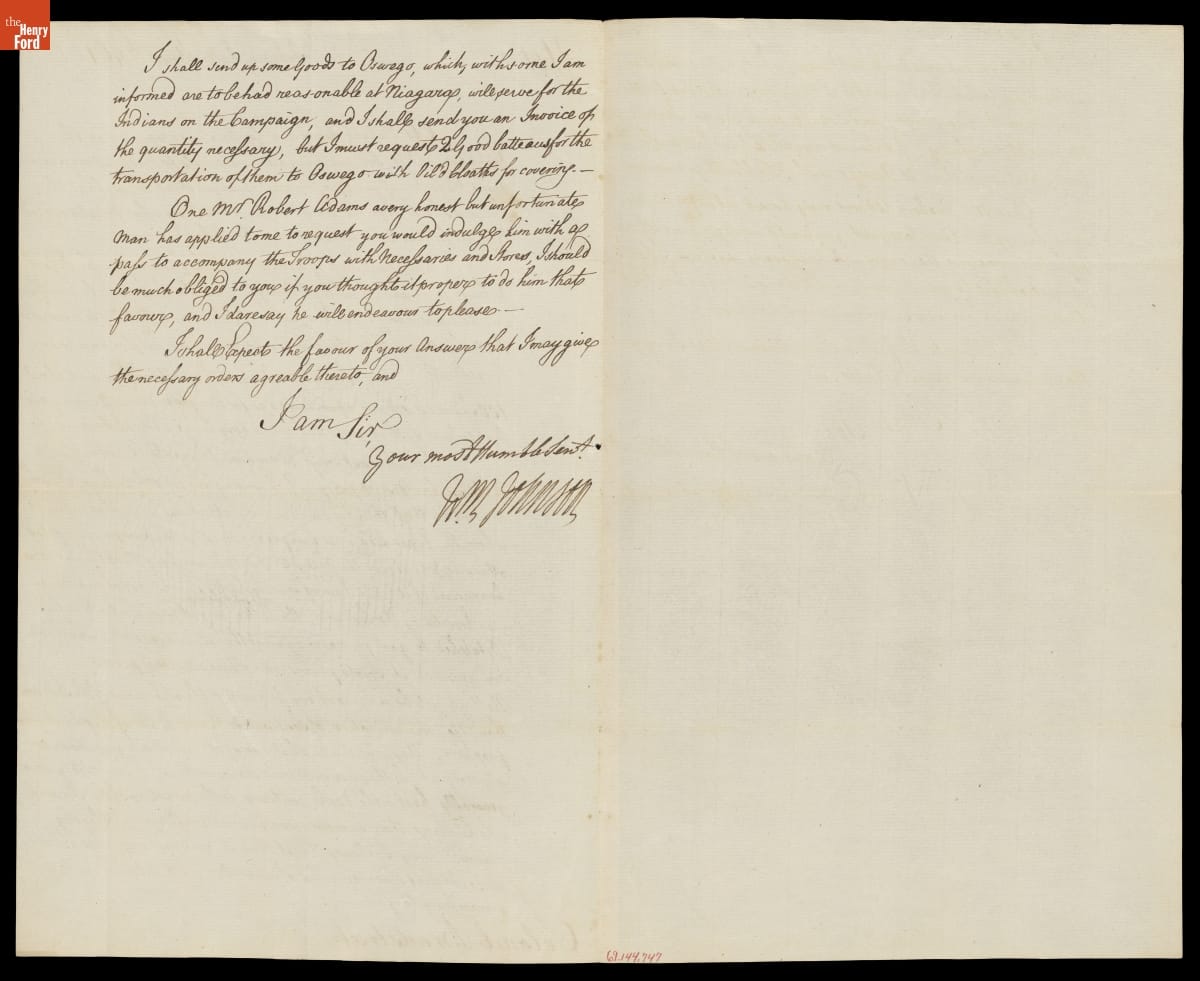 the
Henry
Ford
I shall send up some Goods to Oswego, which, with some I am
informed are to be had reasonable at Niagara, will serve for the
Indians on the Campaign, and I shall send you an Invoice of
the quantity necessary, but I must request 2 Good batteaus for the
transportation of them to Oswego with Oil'd Cloaths for covering.—
One Mr. Robert Adams a very honest but unfortunate
Man has applied to me to request you would indulge him with a
pass to accompany the Troops with Necessaries and Stores, I should
be much obliged to you if you thought it proper to do him that
favour, and I dare say he will endeavour to please.—
I shall Expect the favour of your Answer that I may give
the necessary orders agreable thereto, and
I am Sir,
Your most Humble Servt.
Wm Johnson
69.144.747